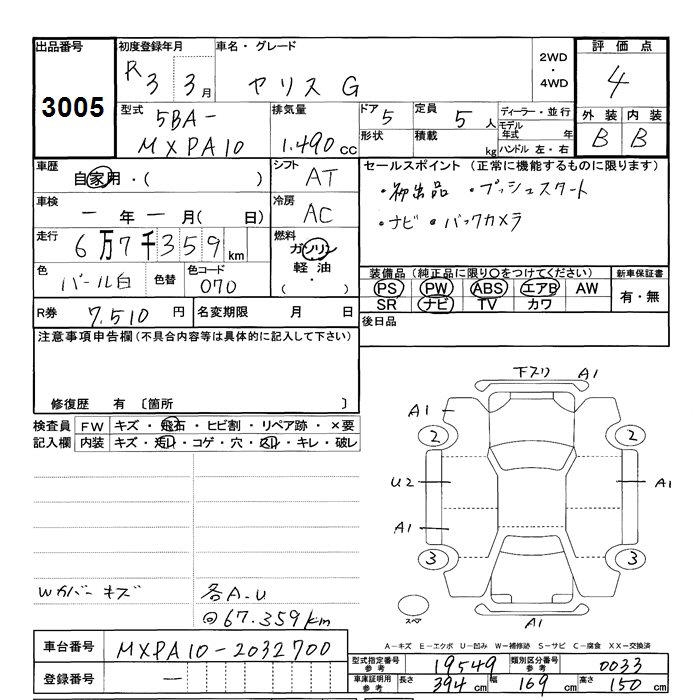 出品番号
3005
初度登録年月
R3 3月
車名・グレード
ヤリス G
2WD
・
4WD
評価点
4
型式
5BA-
MXPA10
排気量
1.490cc
ドア 5
形状
定員 5人
積載 kg
ディーラー・並行
モデル年式 年
ハンドル 左・右
外装 内装
B B
車歴
自家用・( )
シフト
AT
セールスポイント(正常に機能するものに限ります)
・初出品 ・プッシュスタート
・ナビ ・バックカメラ
車検
一年一月( 日)
冷房
AC
走行
6万7千359km
燃料
ガソリン
軽油
・( )
色
パール白
色替
色コード
070
装備品(純正品に限り○をつけてください)
PS PW ABS エアB AW
SR ナビ TV カワ
新車保証書
有・無
R券 7,510円
名変期限 月 日
後日品
注意事項申告欄(不具合内容等は具体的に記入して下さい)
修復歴 有〔箇所 〕
検査員記入欄
FW キズ・飛石・ヒビ割・リペア跡・×要
内装 キズ・汚れ・コゲ・穴・スレ・キレ・破レ
下スリ A1
A1
2 2
U2 A1
A1
3 3
スペア
A1
Wカバーキズ
各A.U
@67.359km
A-キズ E-エクボ U-凹み W-補修跡 S-サビ C-腐食 XX-交換済
車台番号 MXPA10-2032700
登録番号 一
型式指定番号参考 19549
類別区分番号参考 0033
車庫証明用参考 長さ 394cm 幅 169cm 高さ 150cm